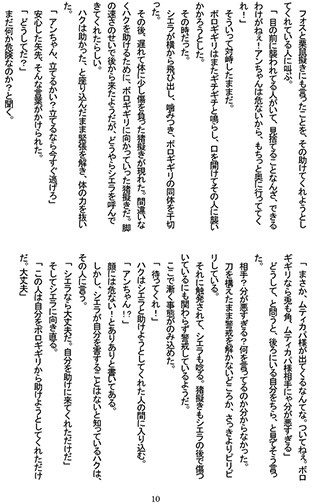 フォスと薬識擬きにも言ったことを、その助けてくれようとし
てくれている人に叫ぶ。
「目の前に襲われてる人がいて、見捨てることなんざ、できる
わけがねえ！アンちゃんは危ないから、もちっと奥に行っててく
れ！」
そういって対峙したままだ。
ボロギギリはまたギチギチと鳴らし、口を開けてその人に襲い
かかろうとした。
その時だった。
シエラが横から飛び出し、噛みつき、ボロギギリの胴体を千切
った。
その後、遅れて体に少し傷を負った猪擬きが現れた。間違いな
くハクを助けるために、ボロギギリに向かっていった猪擬きだ。脚
の速さのせいで後から来たようだが、どうやらシエラを呼んで
きてくれたらしい。
ハクは助かった、と座り込んだまま緊張を解き、体の力を抜い
た。
「アンちゃん、立てるかい？立てるなら今すぐ逃げろ」
安心した矢先、そんな言葉がかけられた。
「どうしてだ？」
まだ何か危険なのか？と聞く。
「まさか、ムティカパ様が出てくるなんてな、ついてねぇ。ボロ
ギギリなら兎も角、ムティカパ様相手にゃ分が悪すぎる」
どうして、と問うと、後ろにいる自分をちら、と見てそう言っ
た。
相手？分が悪すぎる？何を言ってるのか分からなかった。
刀を構えたまま警戒を解かないどころか、さっきよりピリピ
リしている。
それに触発されて、シエラも唸る。猪擬きもシエラの後で傷つ
いているにも関わらず警戒しているようだ。
ここで漸く事態がのみ込めた。
「待ってくれ！」
ハクはシエラと助けようとしてくれた人の間に入り込む。
「アンちゃん!?」
顔には危ない！とありありと書いてある。
しかし、シエラが自分を害することはないと知っているハクは、
その人に言う。
「シエラなら大丈夫だ。自分を助けに来てくれただけだ」
そしてシエラに向き直る。
「この人は自分をボロギギリから助けようとしてくれただけ
だ。大丈夫」
10